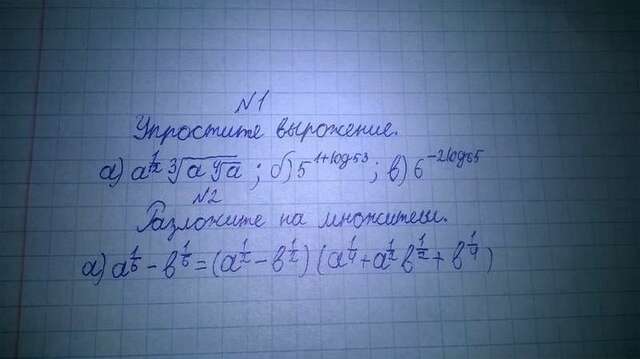 №1
Упростите вырожение.
а) a^{1/2} ∛(a ∜a); б) 5^{1+log₅3}; в) 6^{-2log₆5}
№2
Разложите на множители.
а) a^{1/6} - b^{1/6} = (a^{1/2} - b^{1/2}) (a^{1/4} + a^{1/2} b^{1/2} + b^{1/4})